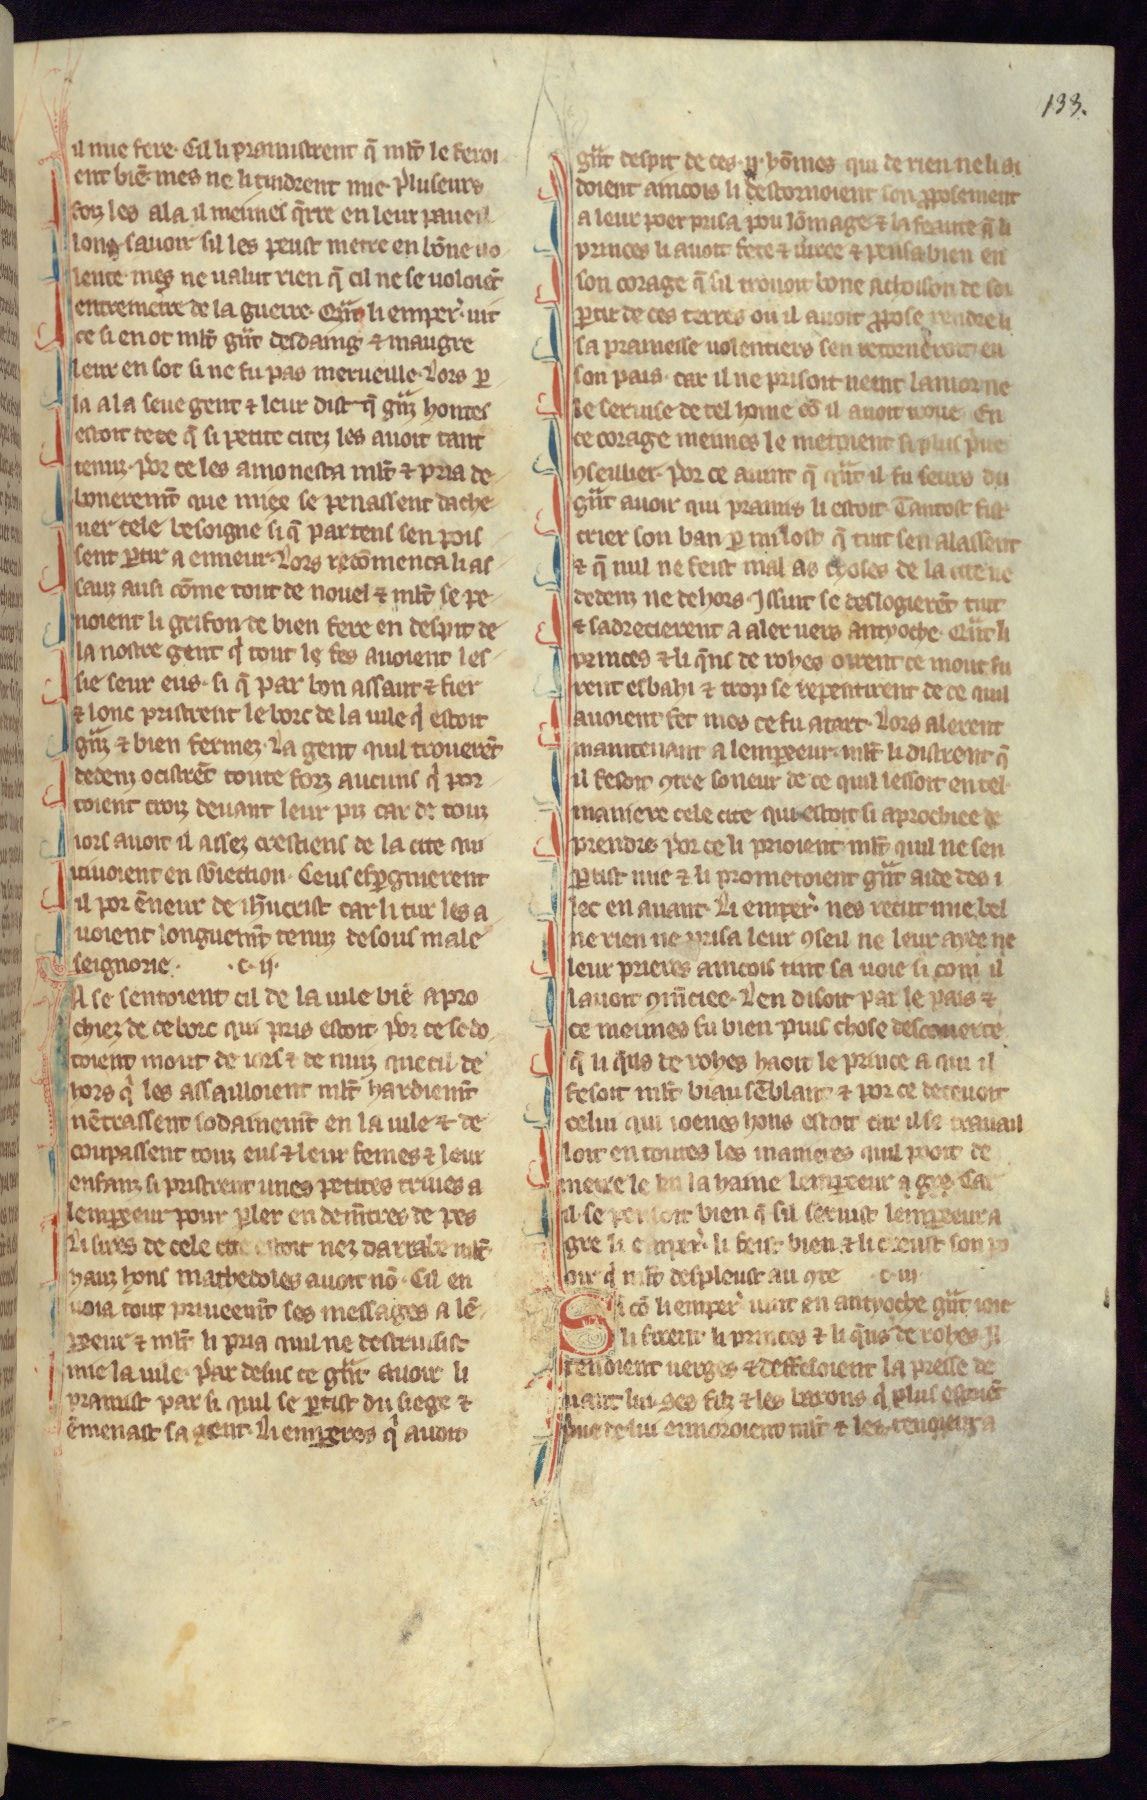 133.
il mie fere. Cil li promistrent q̃ ml̃t le feroi
ent biẽ. mes ne li tindrent mie. Pluseurs
foiz les ala il meimes q̃rre en leur paveil
lons savoir sil les peust metre en bõne vo
lente. mes ne valut rien q̃ cil ne se voloiẽt
entremetre de la guerre. Qñt li emper̃. vit
ce si en ot ml̃t gñt desdaing ⁊ maugre
leur en sot si ne fu pas merveille. Lors p̱
la a la seue gent ⁊ leur dist q̃ gñz hontes
estoit tete q̃ si petite citez les avoit tant
tenuz. Por ce les amonesta ml̃t ⁊ pria de
bonerem̃t que miez se penassent dache
ver cele besoigne si q̃ par tens sen pois
sent p̱tir a enneur. Lors recõmenca li as
sauz ausi cõme tout de novel ⁊ ml̃t se pe
noient li grifon de bien fere en despit de
la nostre gent q̃ tout le fes avoient les
sie seur eus. si q̃ par bon assaut ⁊ fier
⁊ lonc pristrent le borc de la vile q̃ estoit
gñz ⁊ bien fermez. La gent quil troverẽt
dedenz ocistrẽt toute forz aucuns q̃ por
toient croiz devant leur piz car de touz
iors avoit il assez crestiens de la cite qui
vivoient en sb̃iection. Ceus esp̱gnierent
il por ẽneur de ih̃ucrist car li tur les a
voient longuem̃t tenuz desous male
seignorie. .c. ij.
A se sentoient cil de la vile biẽ apro
chiez de ce borc qui pris estoit. Por ce se do
toient mout de iors ⁊ de nuiz que cil de
hors q̃ les assailloient ml̃t hardiem̃t
nẽtrassent sodainem̃t en la vile ⁊ de
coupassent touz eus ⁊ leur femes ⁊ leur
enfanz si pristrent unes petites trives a
lemp̱eeur pour p̱ler en demẽtres de pes
Li sires de cele cite estoit nez darrabe ml̃t
hauz hons mathedoles avoit nõ. Cil en
voia tout priveem̃t ses messages a lẽ
p̱eeur ⁊ ml̃t li pria quil ne destruisist
mie la vile. Par desus ce gñt avoir li
pramist par si quil se p̱tist du siege ⁊
ẽmenast sa gent. Li emp̱eres q̃ avoit
gñt despit de ces .ij. hõmes qui de rien ne li ai
doient aincois li destornoient son p̱posement
a leur poer prisa pou lõmage ⁊ la feaute q̃ li
princes li avoit fete ⁊ iuree ⁊ pensa bien en
son corage q̃ sil trovoit bone achoison de soi
p̱tir de ces terres ou il avoit p̱pose rendre li
sa pramesse volentiers sen retorneroit en
son pais. car il ne prisoit neent lamor ne
le servise de tel home cõ il avoit trove. En
ce corage meimes le metoient si plus prive
ꝯseillier. Por ce avint q̃ qñt il fu seurs du
gñt avoir qui pramis li estoit. Tantost fist
crier son ban p̱mi lost q̃ tuit sen alassent
⁊ q̃ nul ne feist mal as choses de la cite ne
dedenz ne dehors. Issint se deslogierẽt tuit
⁊ sadrecierent a aler vers antyoche. Qñt li
princes ⁊ li q̃ns de rohes oirent ce mout fu
rent esbahi ⁊ trop se repentirent de ce quil
avoient fet mes ce fu atart. Lors alerent
maintenant a lemp̱eeur. ml̃t li distrent q̃
il fesoit ꝯtre soneur de ce quil lessoit en tel
maniere cele cite qui estoit si aprochiee de
prendre. Por ce li prioient ml̃t quil ne sen
p̱tist mie ⁊ li prometoient gñt aide des i
lec en avant. Li emper̃. nes recut mie bel
ne rien ne prisa leur ꝯseil ne leur ayde ne
leur prieres aincois tint sa voie si com il
lavoit ꝯm̃ciee. Len disoit par le pais ⁊
ce meimes fu bien puis chose descouerte
q̃ li q̃ns de rohes haoit le prince a qui il
fesoit ml̃t biau sẽblant ⁊ por ce decevoit
celui qui ioenes hons estoit car il se travail
loit en toutes les manieres quil pooit de
metre le en la haine lemp̱eeur a gre. Car
il se pensoit bien q̃ sil servist lemp̱eeur a
gre li emper̃. li feist bien ⁊ li creust son po
oir q̃ ml̃t despleust au ꝯte .c. iij.
Si cõ li emper̃ vint en antyoche gñt ioie
li firent li princes ⁊ li q̃ns de rohes. Il
tenoient verges ⁊ desfesoient la presse de
vant lui. Ses filz ⁊ les barons q̃ plus estoiẽt
prive de lui ennoroient ml̃t ⁊ les